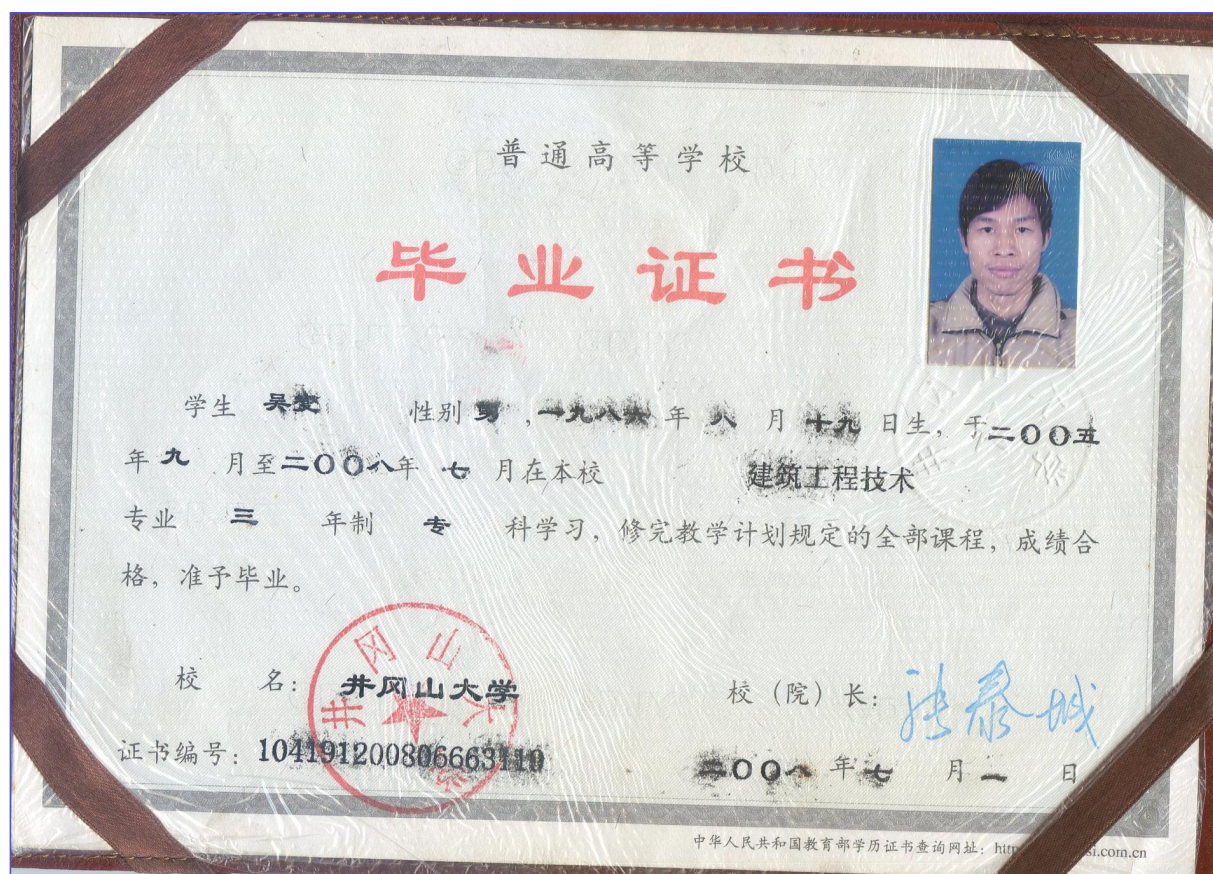 普通高等学校
毕业证书
学生 吴 性别 男 ,一九八六年 八 月 十九 日生, 于二〇〇五
年 九 月至二〇〇八年 七 月在本校 建筑工程技术
专业 三 年制 专 科学习, 修完教学计划规定的全部课程, 成绩合
格, 准予毕业。
校 名: 井冈山大学
校 (院) 长: 张泰城
证书编号: 104191200806663110
二〇〇八 年 七 月 一 日
井冈山大学
中华人民共和国教育部学历证书查询网址: http si.com.cn